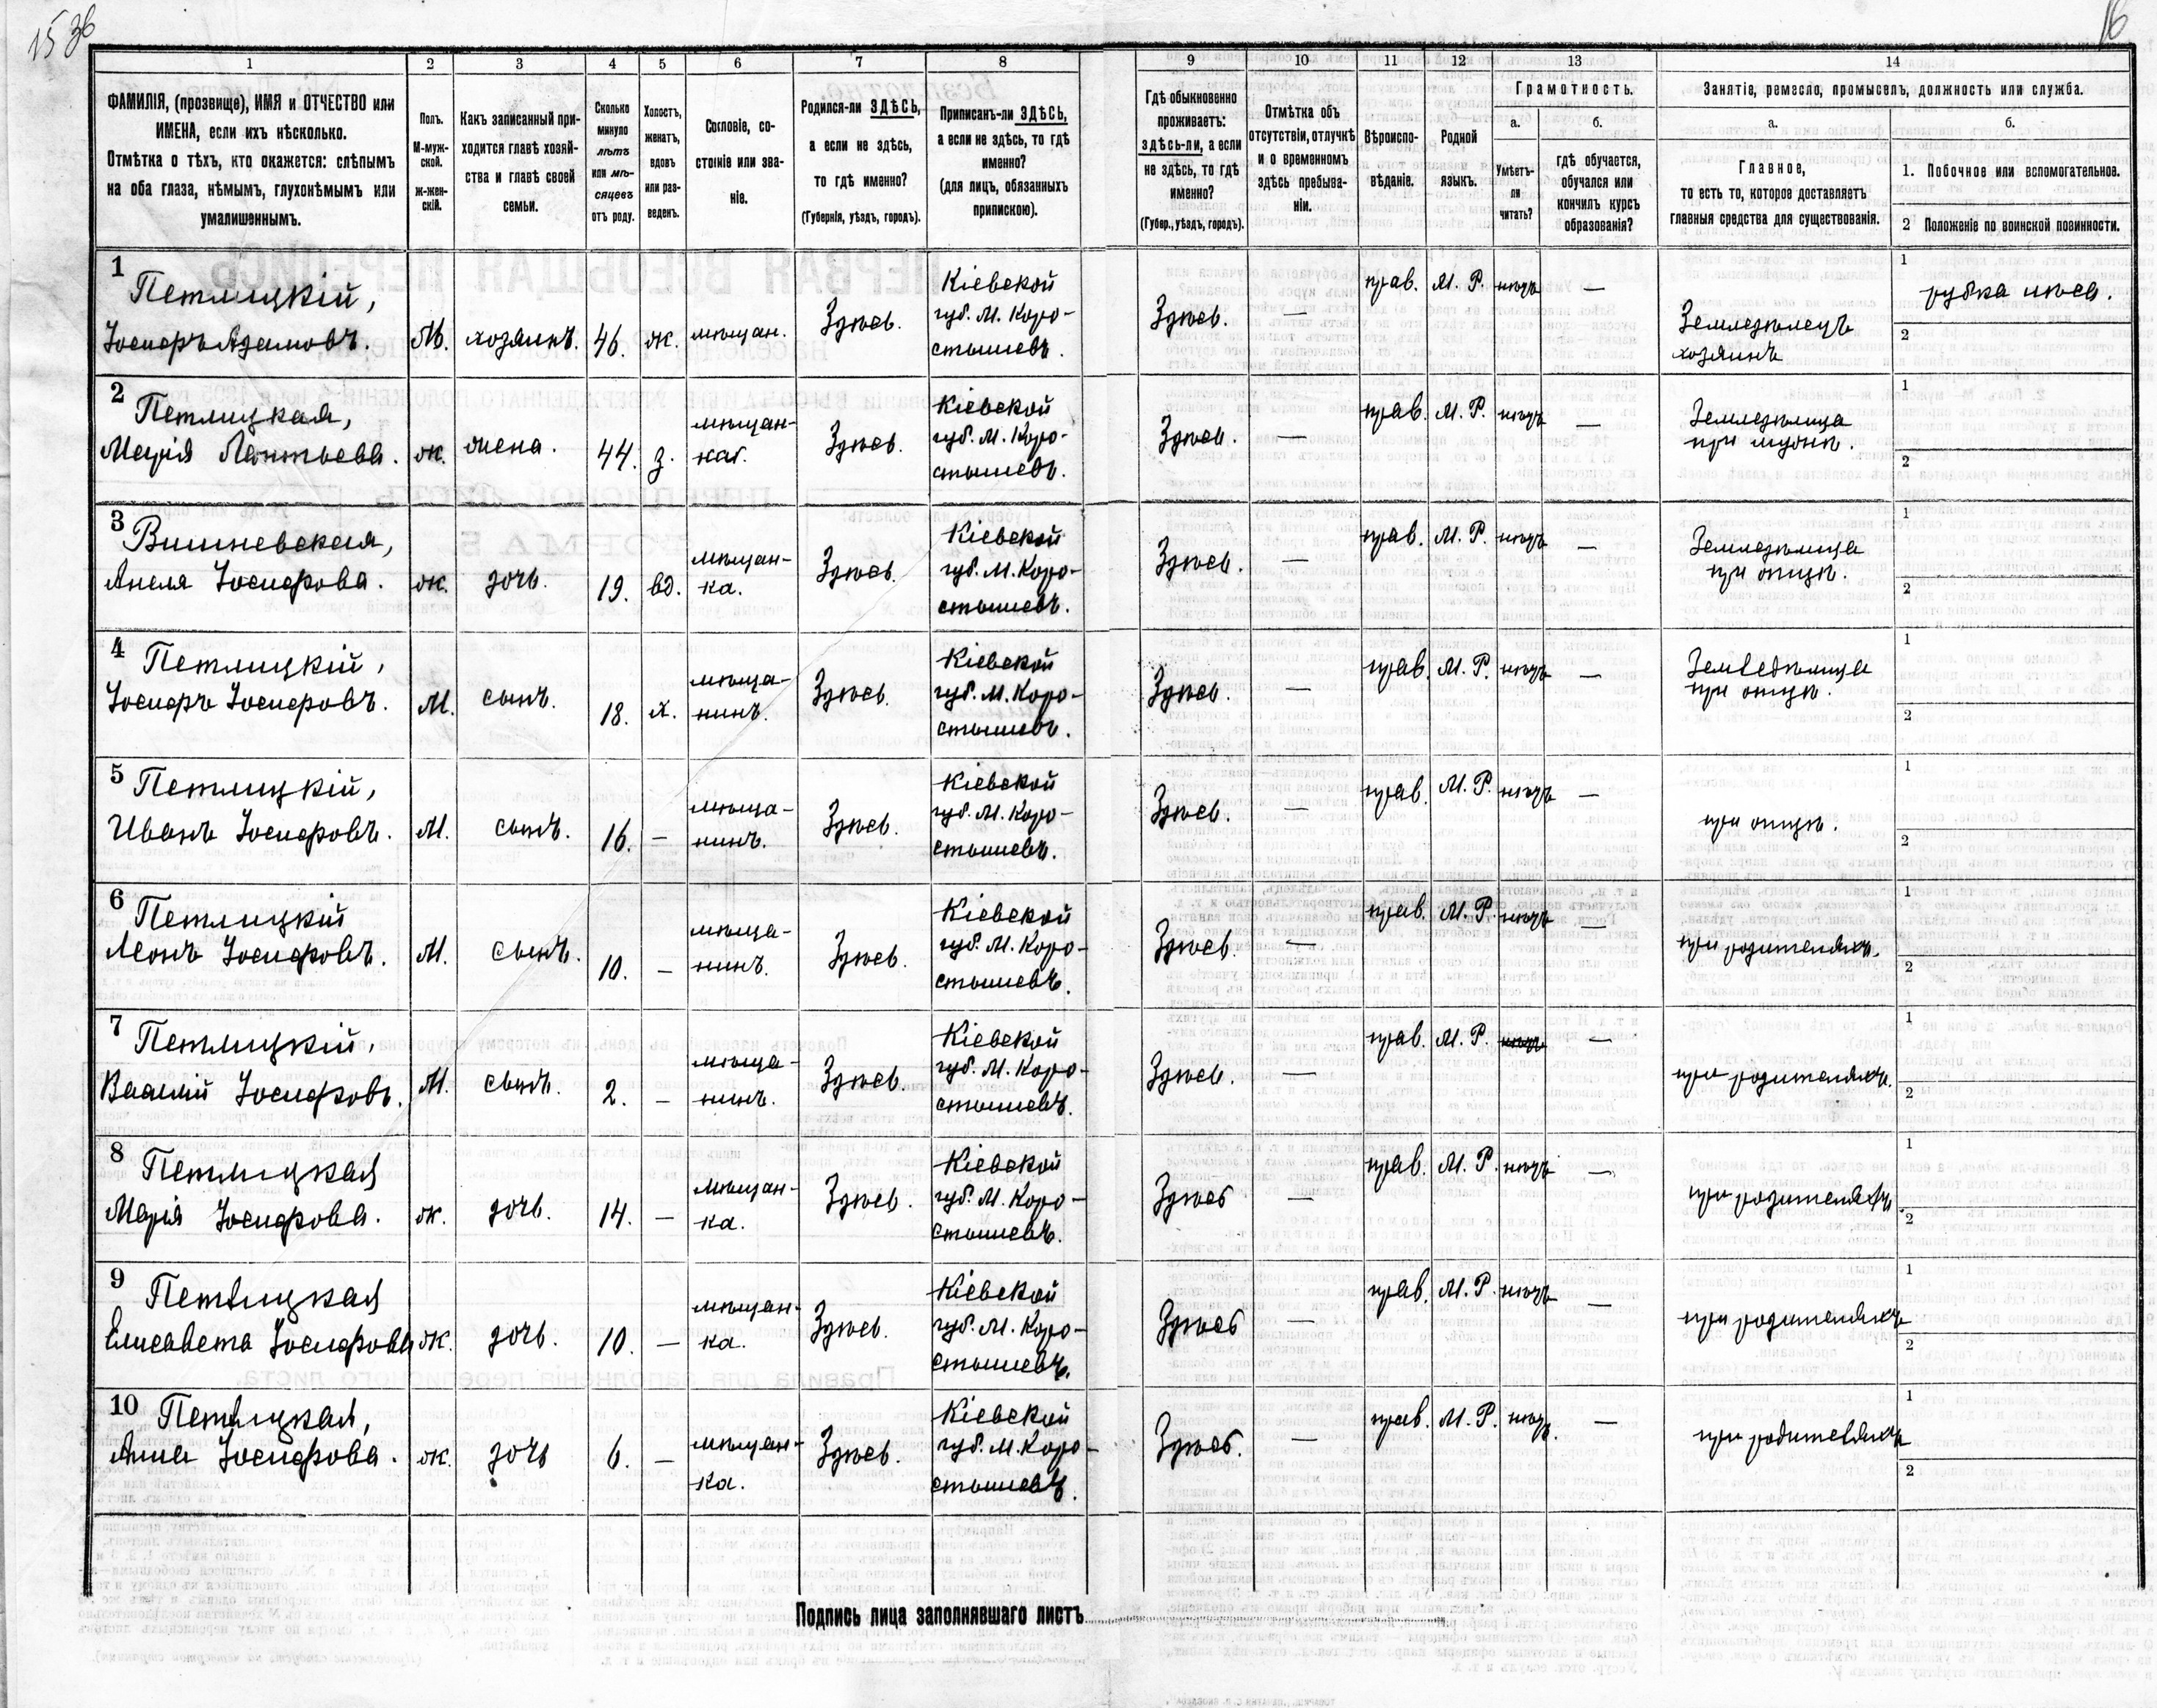 15 об
16
1
2
3
4
5
6
7
8
9
10
11
12
13
14
ФАМИЛІЯ, (прозвище), ИМЯ и ОТЧЕСТВО или
ИМЕНА, если ихъ нѣсколько.
Отмѣтка о тѣхъ, кто окажется: слѣпымъ
на оба глаза, нѣмымъ, глухонѣмымъ или
умалишеннымъ.
Полъ.
М-муж-
ской.
ж-жен-
скій.
Какъ записанный при-
ходится главѣ хозяй-
ства и главѣ своей
семьи.
Сколько
минуло
лѣтъ
или мѣ-
сяцевъ
отъ роду.
Холостъ,
женатъ,
вдовъ
или раз-
веденъ.
Сословіе, со-
стояніе или зва-
ніе.
Родился-ли ЗДѢСЬ,
а если не здѣсь,
то гдѣ именно?
(Губернія, уѣздъ, городъ).
Приписанъ-ли ЗДѢСЬ,
а если не здѣсь, то гдѣ
именно?
(для лицъ, обязанныхъ
припискою).
Гдѣ обыкновенно
проживаетъ:
здѣсь-ли, а если
не здѣсь, то гдѣ
именно?
(Губер., уѣздъ, городъ).
Отмѣтка объ
отсутствіи, отлучкѣ
и о временномъ
здѣсь пребыва-
ніи.
Вѣроиспо-
вѣданіе.
Родной
языкъ.
Грамотность.
а.
Умѣетъ-
ли
читать?
б.
гдѣ обучается,
обучался или
кончилъ курсъ
образованія?
Занятіе, ремесло, промыселъ, должность или служба.
а.
Главное,
то есть то, которое доставляетъ
главныя средства для существованія.
б.
1. Побочное или вспомогательное.
2 Положеніе по воинской повинности.
1
Петлицкій,
Іосифъ Адамовъ. М. хозяинъ. 46. ж. мѣщан. Здѣсь.
Кіевской
губ. М. Коро-
стышевъ.
Здѣсь. — прав. М. Р. нѣтъ —
Земледѣлецъ
хозяинъ
1
рубка лѣса.
2
2
Петлицкая,
Марія Леонтьева. ж. жена. 44. з.
мѣщан-
ка.
Здѣсь.
Кіевской
губ. М. Коро-
стышевъ.
Здѣсь. — прав. М. Р. нѣтъ —
Земледѣлица
при мужѣ.
1
2
3
Вишневская,
Анеля Іосифова. ж. дочь. 19. вд.
мѣщан-
ка.
Здѣсь.
Кіевской
губ. М. Коро-
стышевъ.
Здѣсь. — прав. М. Р. нѣтъ —
Земледѣлица
при отцѣ.
1
2
4
Петлицкій,
Іосифъ Іосифовъ. М. сынъ. 18. х.
мѣща-
нинъ.
Здѣсь.
Кіевской
губ. М. Коро-
стышевъ.
Здѣсь. — прав. М. Р. нѣтъ —
Земледѣлица
при отцѣ.
1
2
5
Петлицкій,
Иванъ Іосифовъ. М. сынъ. 16. —
мѣща-
нинъ.
Здѣсь.
Кіевской
губ. М. Коро-
стышевъ.
Здѣсь. — прав. М. Р. нѣтъ —
при отцѣ.
1
2
6
Петлицкій
Леонъ Іосифовъ. М. сынъ. 10. —
мѣща-
нинъ.
Здѣсь.
Кіевской
губ. М. Коро-
стышевъ.
Здѣсь. — прав. М. Р. нѣтъ —
при родителяхъ.
1
2
7
Петлицкій,
Василій Іосифовъ. М. сынъ. 2. —
мѣща-
нинъ.
Здѣсь.
Кіевской
губ. М. Коро-
стышевъ.
Здѣсь. — прав. М. Р. нѣтъ —
при родителяхъ.
1
2
8
Петлицкая
Марія Іосифова. ж. дочь. 14. —
мѣщан-
ка.
Здѣсь.
Кіевской
губ. М. Коро-
стышевъ.
Здѣсь — прав. М. Р. нѣтъ —
при родителяхъ
1
2
9
Петлицкая
Елисавета Іосифова ж. дочь. 10. —
мѣщан-
ка.
Здѣсь.
Кіевской
губ. М. Коро-
стышевъ.
Здѣсь — прав. М. Р. нѣтъ —
при родителяхъ
1
2
10
Петлицкая,
Анна Іосифова. ж. дочь 6. —
мѣщан-
ка.
Здѣсь.
Кіевской
губ. М. Коро-
стышевъ.
Здѣсь. — прав. М. Р. нѣтъ. —
при родителяхъ
1
2
Подпись лица заполнявшаго листъ